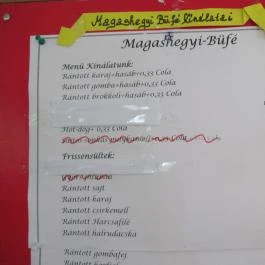 Magashegyi Büfé Kínálatai
Magashegyi-Büfé
Menü Kínálatunk:
Rántott karaj+hasáb+0,33 Cola
Rántott gomba+hasáb+0,33 Cola
Rántott brokkoli+hasáb+0,33 Cola
Hot-dog+ 0,33 Cola
Frissensültek:
Rántott sajt
Rántott karaj
Rántott csirkemell
Rántott Harcsafilé
Rántott halrudacska
Rántott gombafej
Rántott